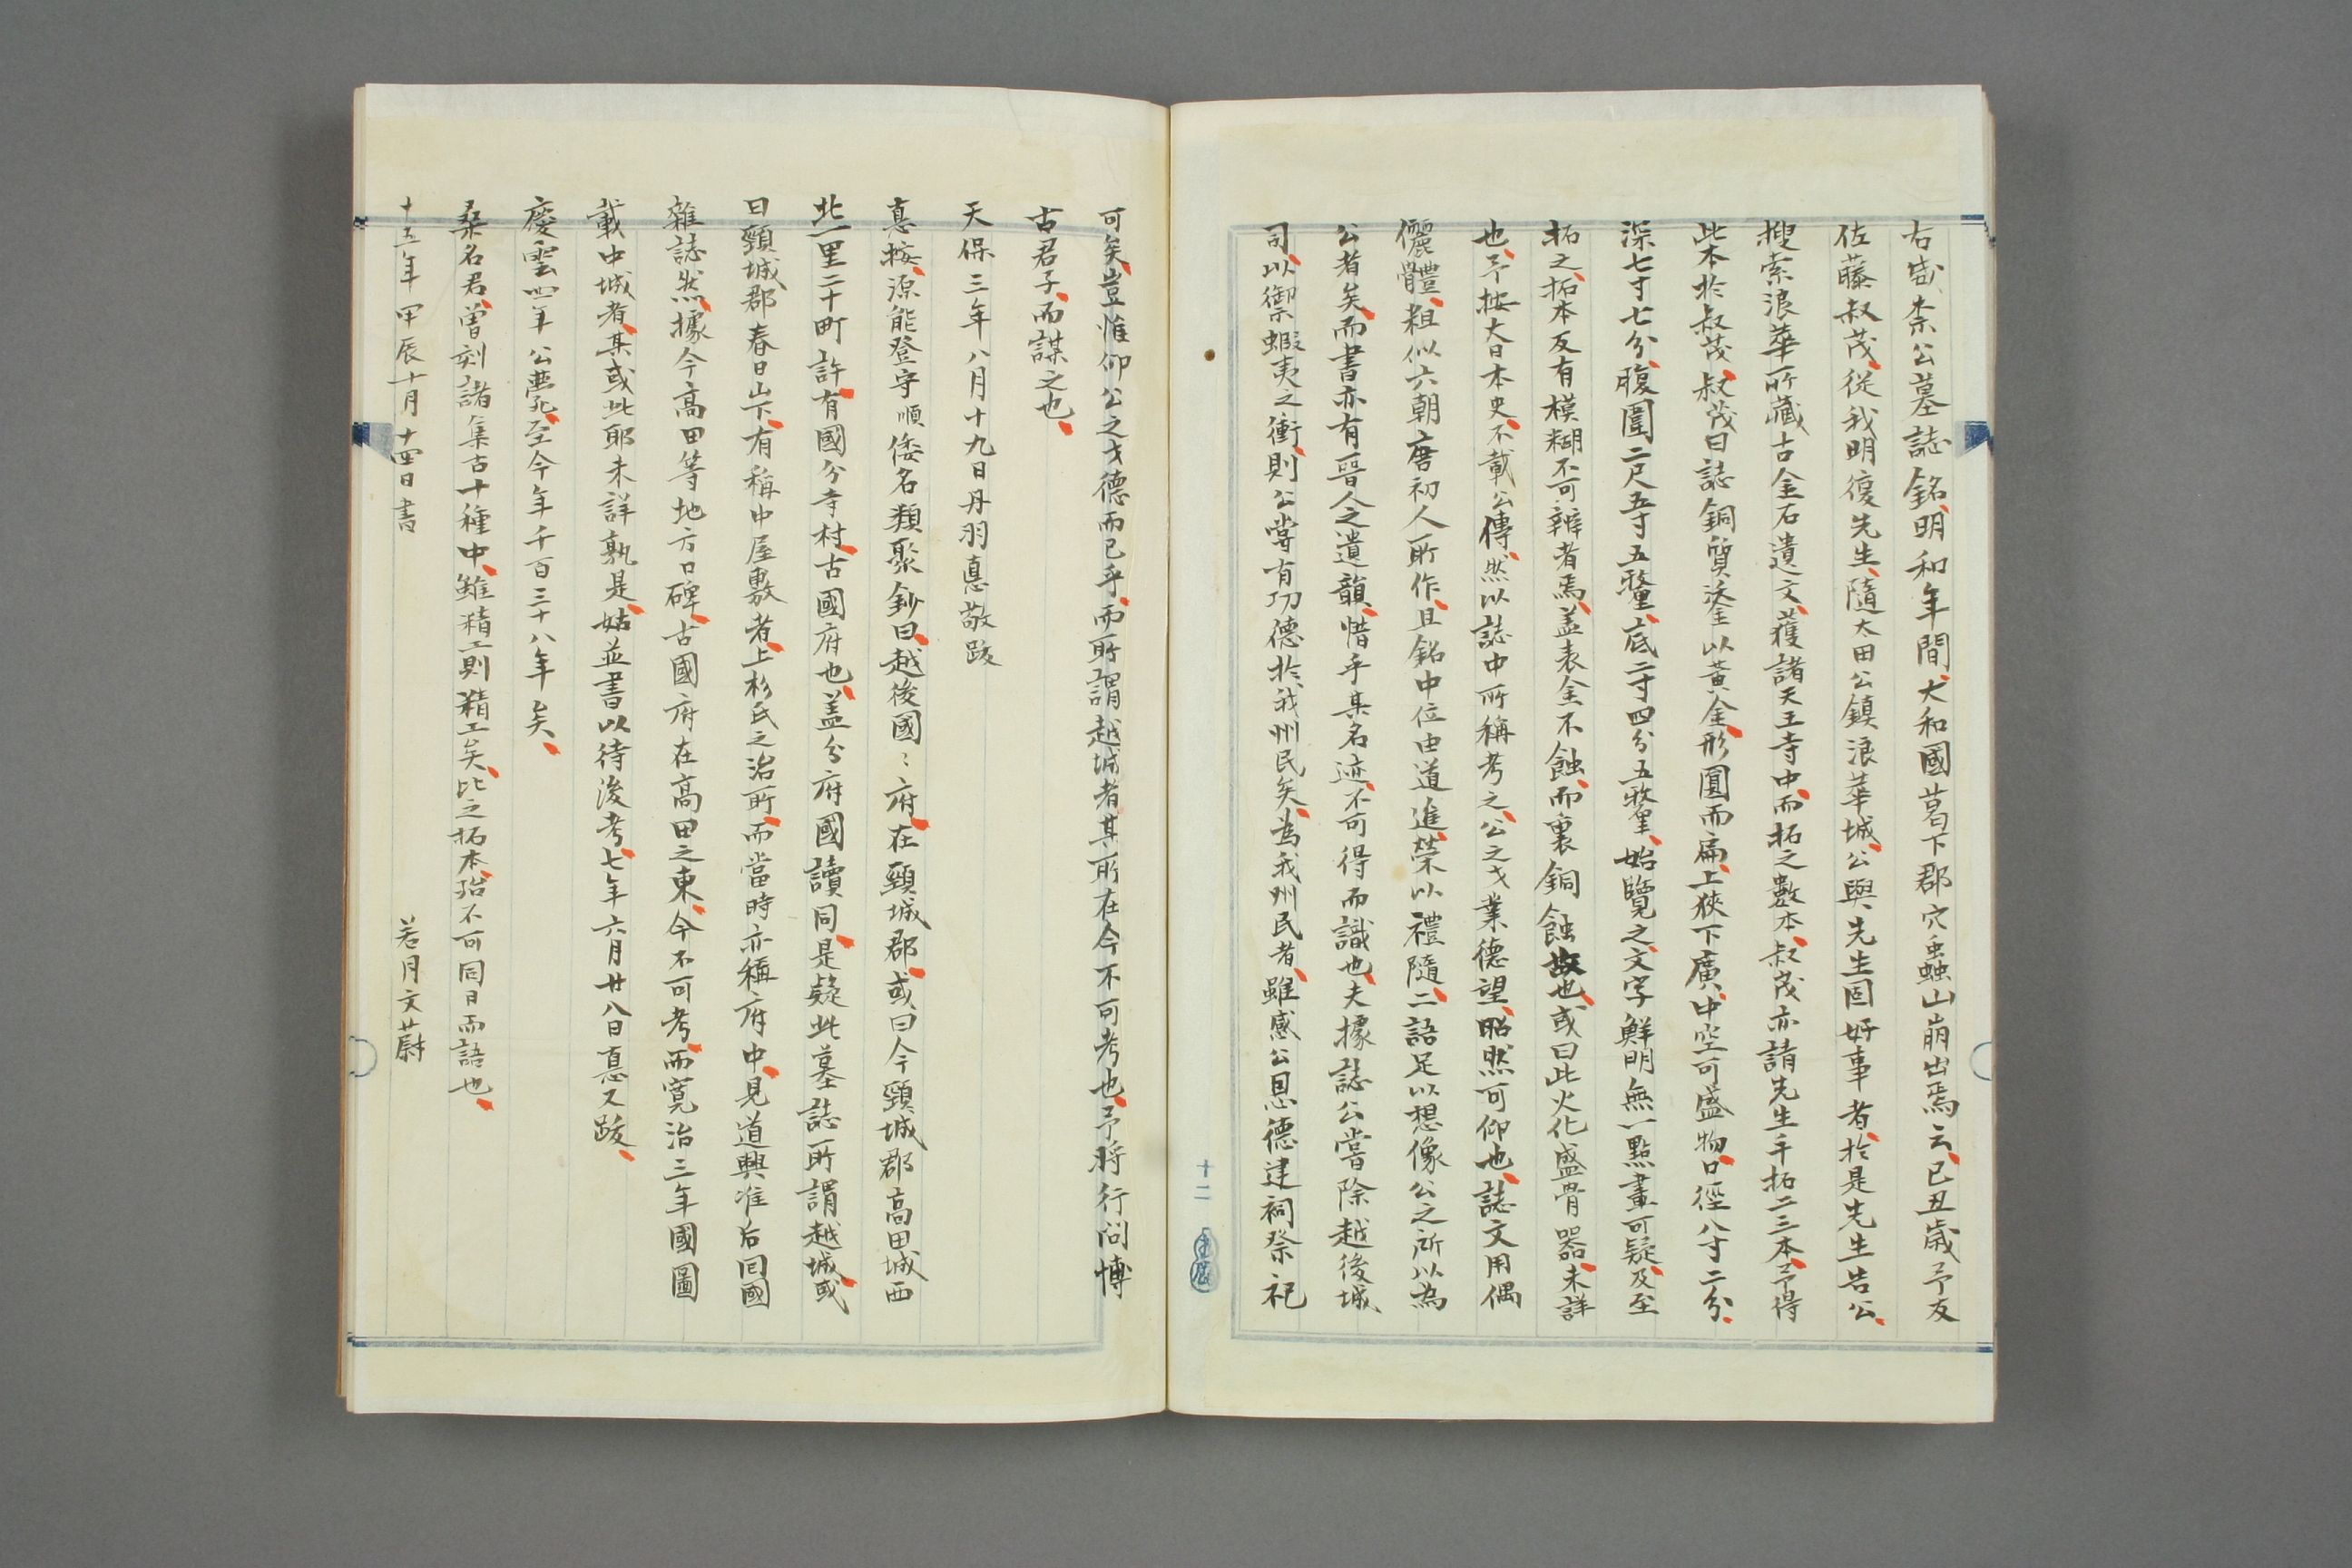 右威奈公墓誌銘、明和年間、大和國葛下郡穴蟲山崩出焉云、己丑歳予友
佐藤叔茂、從我明復先生、隨太田公鎮浪華城、公與先生固好事者、於是先生告公、
搜索浪華所藏古金石遺文、獲諸天王寺中、而拓之數本、叔茂亦請先生手拓二三本、予得
此本於叔茂、叔茂曰誌銅質塗以黃金、形圓而扁、上狹下廣、中空可盛物、口徑八寸二分、
深七寸七分、腹圍二尺五寸五釐、底二寸四分五釐、始覽之、文字鮮明無一點畫可疑、及至
拓之、拓本反有模糊不可辨者焉、盖表金不蝕、而裏銅蝕故也、或曰此火化盛骨器、未詳
也、予按大日本史、不載公傳、然以誌中所稱考之、公之才業德望、昭然可仰也、誌文用偶
儷體、粗似六朝唐初人所作、且銘中位由道進、榮以禮隨、二語足以想像公之所以為
公者矣、而書亦有晉人之遺韻、惜乎其名迹、不可得而識也、夫據誌公嘗除越後城
司、以御蝦夷之衝、則公嘗有功德於我州民矣、為我州民者、雖感公恩德建祠祭祀
十二
可矣、豈惟仰公之才德而已乎、而所謂越城者其所在今不可考也、予將行問博
古君子、而謀之也、
天保三年八月十九日丹羽悳敬跋
悳按、源能登守順倭名類聚鈔曰、越後國〻府、在頸城郡、或曰今頸城郡高田城西
北一里二十町許、有國分寺村、古國府也、盖分府國讀同、是疑此墓誌所謂越城、或
曰頸城郡春日山下、有稱中屋敷者、上杉氏之治所、而當時亦稱府中、見道興准后囘國
雜誌然、據今高田等地方口碑、古國府在高田之東、今不可考、而寬治三年國圖
載中城者、某或此耶未詳孰是、姑並書以待後考、七年六月廿八日悳又跋、
慶雲四年公薨、至今年千百三十八年矣、
桑名君、曾刻諸集古十種中、雖精工則精工矣、比之拓本、殆不可同日而語也、
十五年甲辰十月十四日書　若月文蔚